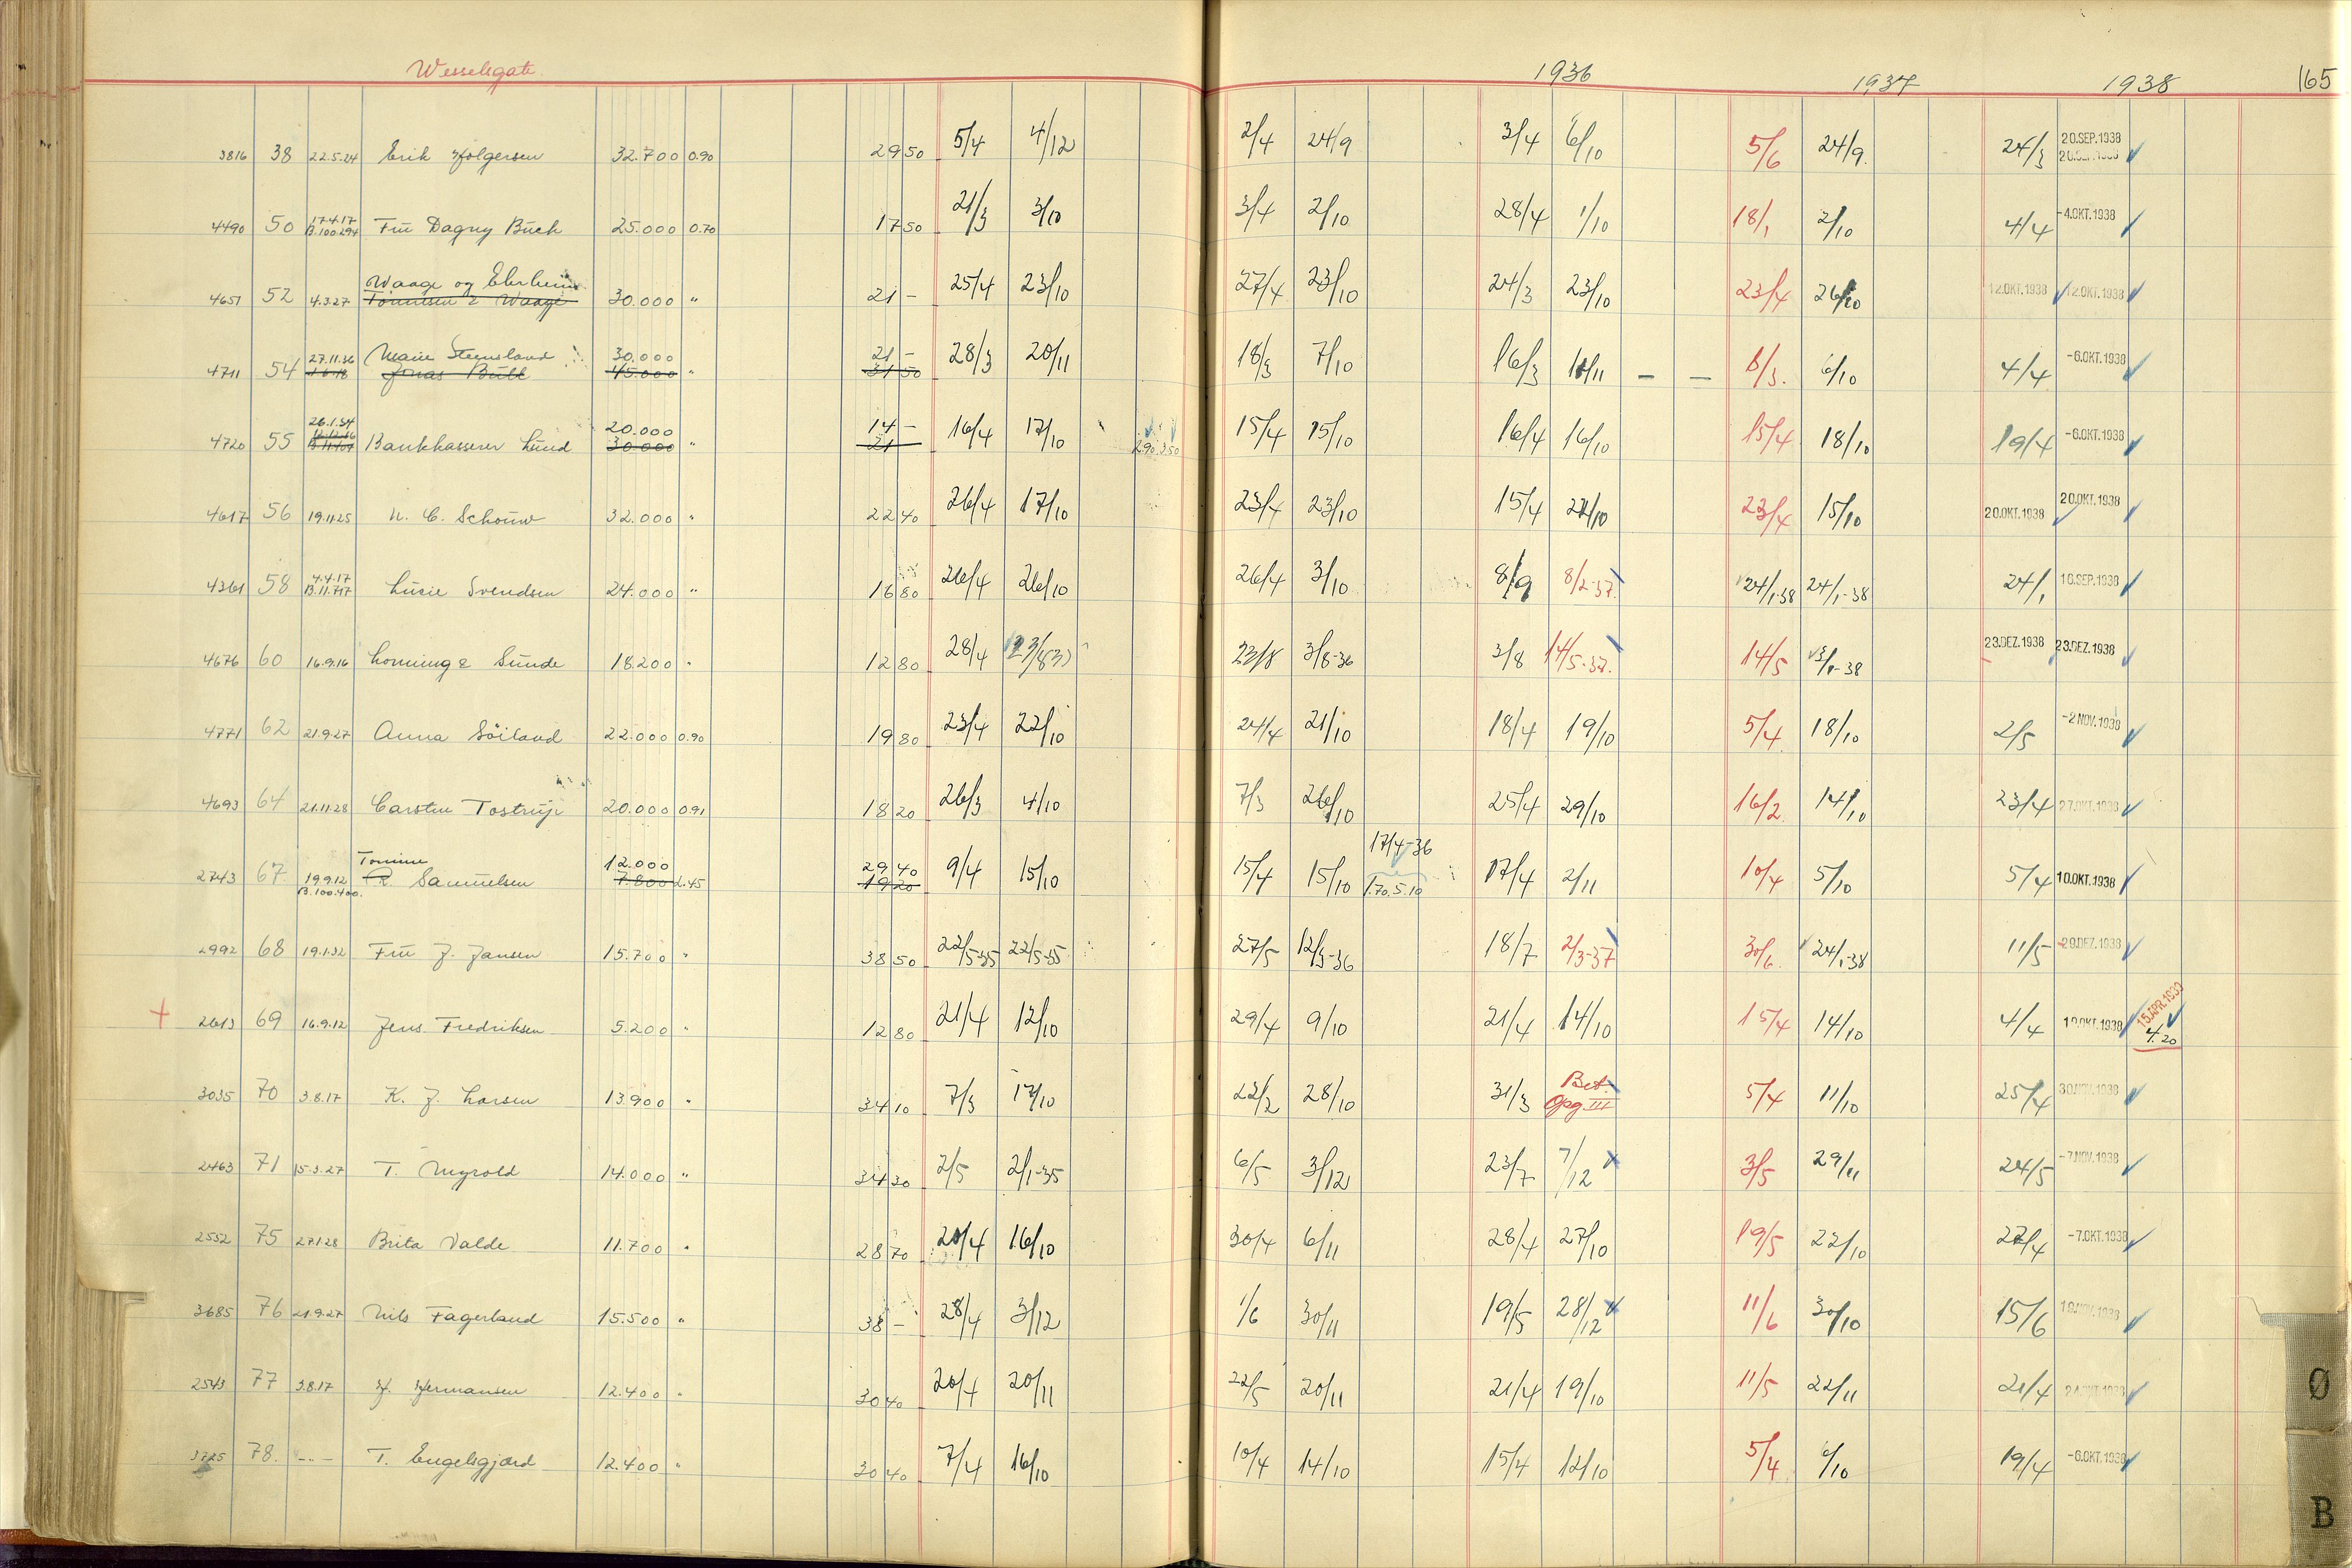 Wesselsgate 1936 1937 1938 165
3816 38 22.5.24 Erik Holgersen 32.700 0.90 29 50 5/4 4/12 2/4 24/9 3/4 6/10 5/6 24/9. 24/3 20.SEP.1938
20.SEP.1938
4490 50 17.4.17 B.100.294 Frü Dagny Büch 25.000 0.70 17 50 21/3 3/10 3/4 2/10 28/4 1/10 18/1 2/10 4/4 -4.OKT.1938
Waage og
4651 52 4.3.27 Tönnesen & Waage 30.000 " 21 - 25/4 23/10 27/4 23/10 24/3 23/10 23/4 26/10 12.OKT.1938 12.OKT.1938
27.11.36 Marie Steensland 30.000 21 -
4711 54 Jonas Büll 45.000 " 31 50 28/3 20/11 18/3 7/10 16/3 10/11 - - 8/3. 6/10 4/4 -6.OKT.1938
26.1.34 20.000 14 -
4720 55 Bankkasserer Lünd 30.000 " 21 16/4 17/10 2.90 3.50 15/4 15/10 16/4 16/10 15/4 18/10 19/4 -6.OKT.1938
4617 56 19.11.25 N. C. Schouw 32.000 " 22 40 26/4 17/10 23/4 23/10 15/4 24/10 23/4 15/10 20.OKT.1938 20.OKT.1938
4361 58 4.4.17 B.11.717 Lücie Svendsen 24.000 " 16 80 26/4 26/10 26/4 3/10 8/9 8/2-37. 24/1-38 24/1-38 24/1 16.SEP.1938
4676 60 16.9.16 Lonning & Sünde 18.200 " 12 80 28/4 23/8 3/8-36 3/8 14/5-37. 14/5 23.DEZ.1938 23.DEZ.1938
4771 62 21.9.27 Anna Söiland 22.000 0.90 19 80 23/4 22/10 24/4 21/10 18/4 19/10 5/4 18/10 2/5 -2 NOV.1938
4693 64 21.11.28 Carsten Tostrup 20.000 0.91 18 20 26/3 4/10 7/3 26/10 25/4 29/10 16/2 14/10 23/4 27.OKT.1938
Tomine 12.000 29 40 17/4-36
2743 67 19.9.12 B.100.400. R. Samüelsen 7.800 2.45 19 20 9/4 15/10 15/4 15/10 1.70. 5.10 17/4 2/11 10/4 5/10 5/4 10.OKT.1938
2992 68 19.1.32 Frü J. Jansen 15.700 " 38 50 22/5-35 22/5-35 27/5 12/3-36 18/7 2/3-37 30/6. 24/1-38 11/5 29.DEZ.1938
+ 2613 69 16.9.12 Jens Fredriksen 5.200 " 12 80 21/4 12/10 29/4 9/10 21/4 14/10 15/4 14/10 4/4 10.OKT.1938 15.APR.1939 4.20
3035 70 3.8.17 K. J. Larsen 13.900 " 34 10 7/3 17/10 22/2 28/10 31/3 Bet. Opg III 5/4 11/10 25/4 30.NOV.1938
2463 71 15.3.27 T. Myrold 14.000 " 34 30 2/5 2/1-35 6/5 3/12 23/7 7/12 3/5 29/11 24/5 -7.NOV.1938
2552 75 27.1.28 Brita Valde 11.700 " 28 70 20/4 16/10 30/4 6/11 28/4 27/10 19/5 22/10 27/4 -7.OKT.1938
3685 76 21.9.27 Nils Fagerland 15.500 " 38 - 28/4 3/12 1/6 30/11 19/5 28/12 11/6 30/10 15/6 19.NOV.1938
2543 77 3.8.17 H. Hermansen 12.400 " 30 40 20/4 20/11 22/5 20/11 21/4 19/10 11/5 22/11 21/4
3725 78. -"- T. Engelsgjærd 12.400 " 30 40 7/4 16/10 10/4 14/10 15/4 12/10 5/4 6/10 19/4 -6.OKT.1938
Ø
B